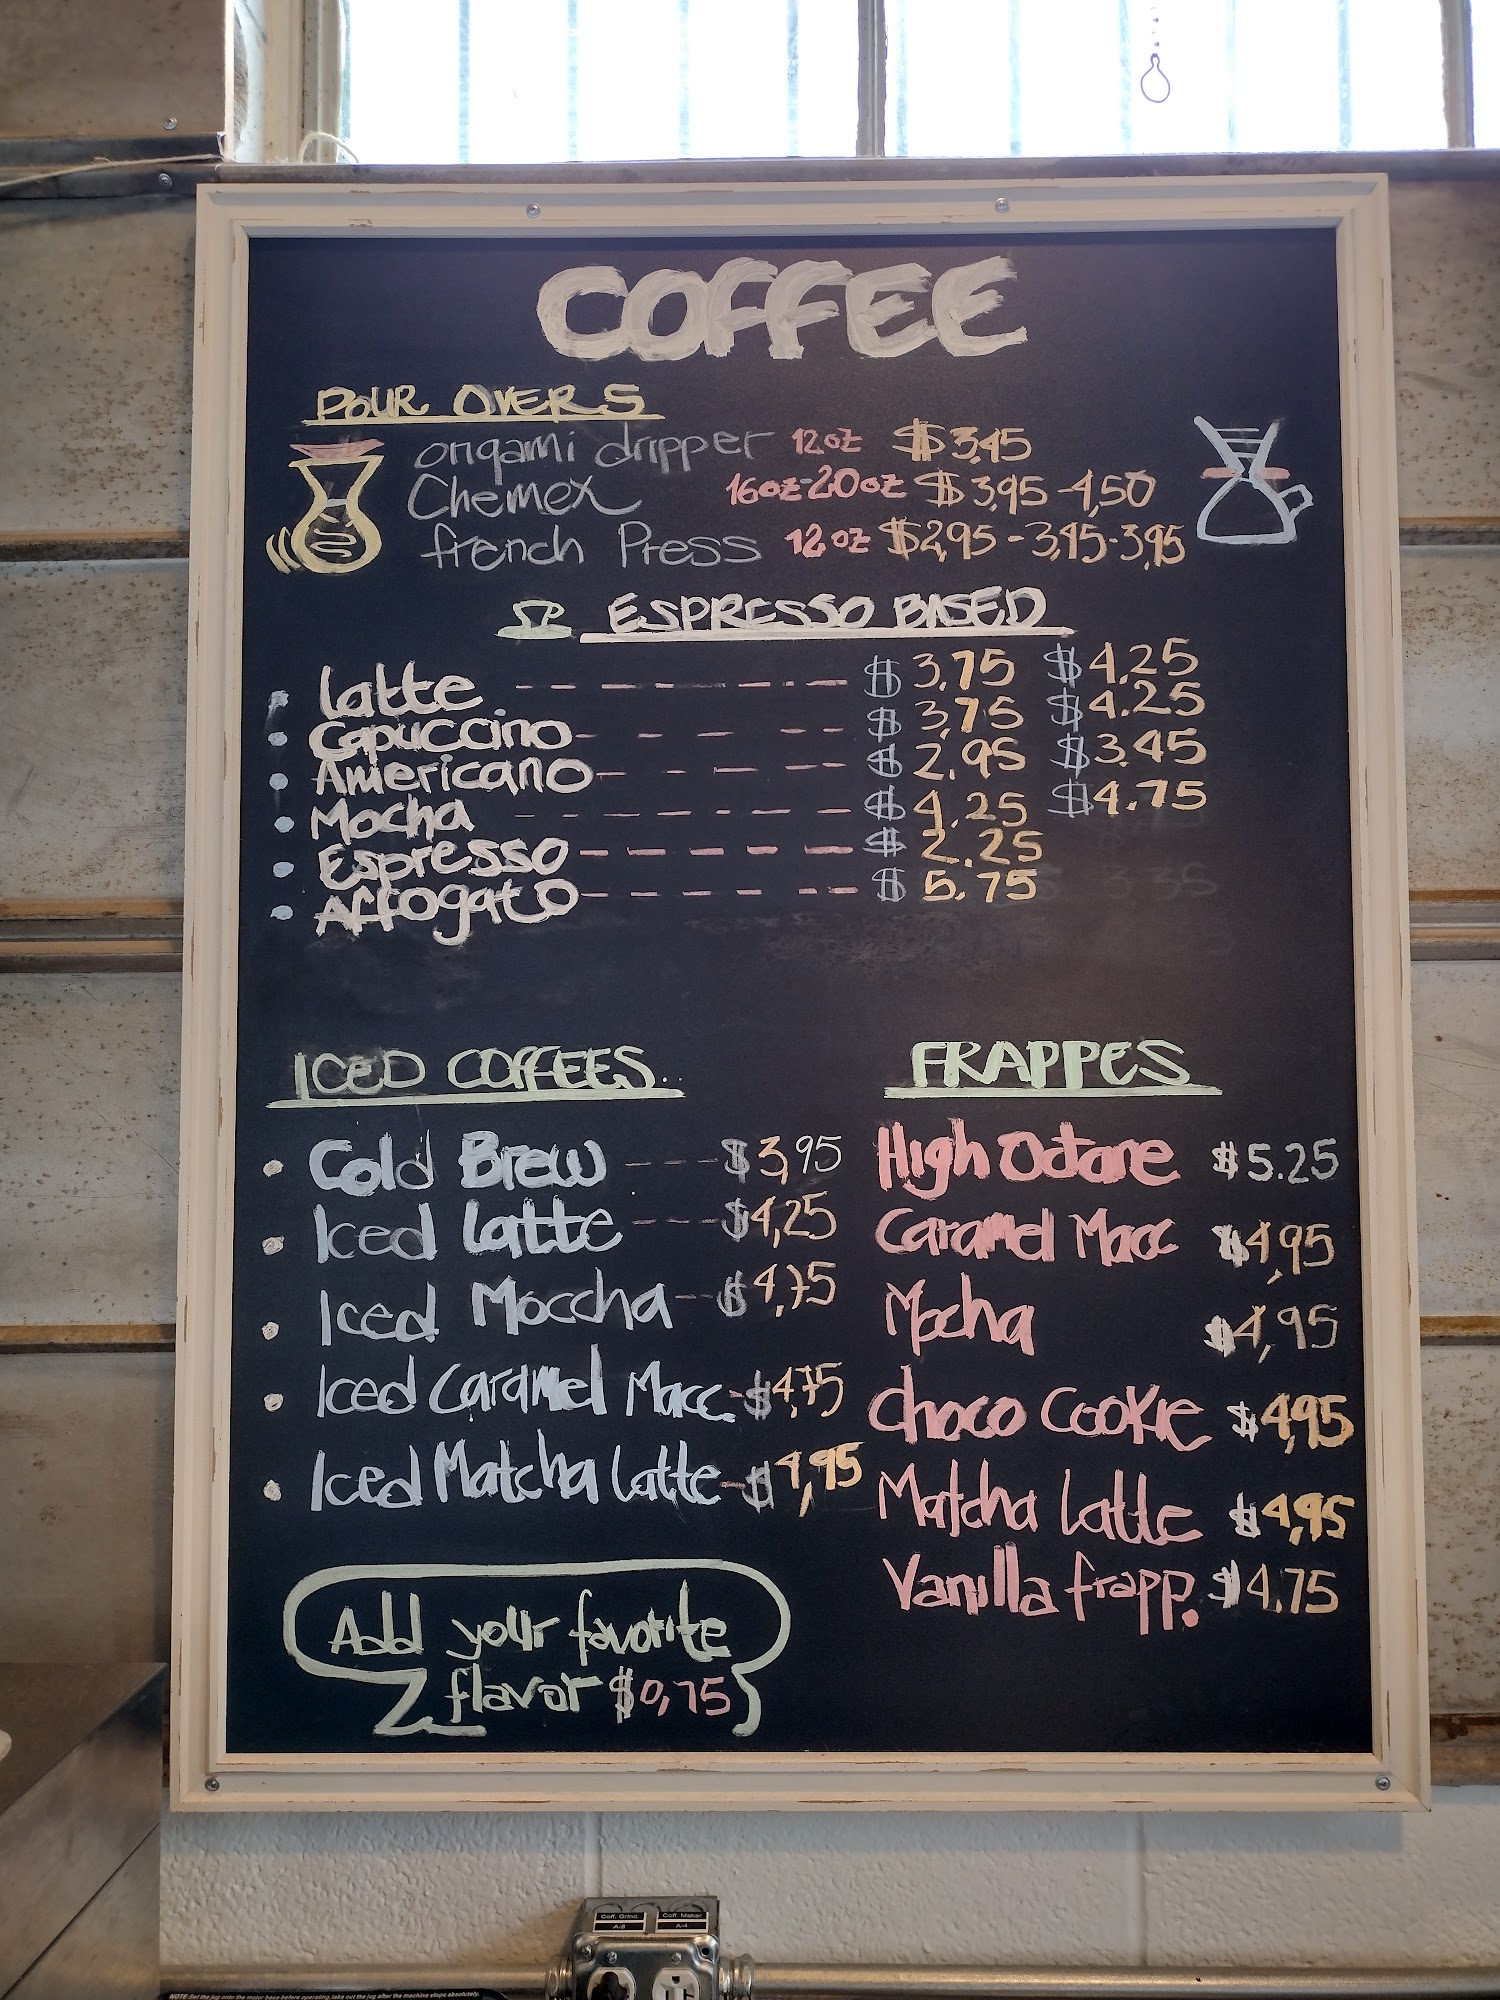 COFFEE
POUR OVERS
origami dripper 12oz $3,45
Chemex 16oz-20oz $3,95-4,50
french Press 12oz $2,95-3,45-3,95
ESPRESSO BASED
Latte $3,75 $4,25
Capuccino $3,75 $4.25
Americano $2.95 $3.45
Mocha $4.25 $4.75
Espresso $2.25
Affogato $5.75
ICED COFFEES
Cold Brew $3,95
Iced Latte $4,25
Iced Moccha $4,75
Iced Caramel Macc. $4,75
Iced Matcha Latte $4,95
FRAPPES
High Octane $5.25
Caramel Macc $4,95
Mocha $4,95
Choco Cookie $4,95
Matcha Latte $4,95
Vanilla frapp. $4.75
Add your favorite
flavor $0,75
Coff. Grind. Coff. Maker
A-4
NOTE: Set the jug onto the motor base before operating, take out the jug after the machine stops absolutely.